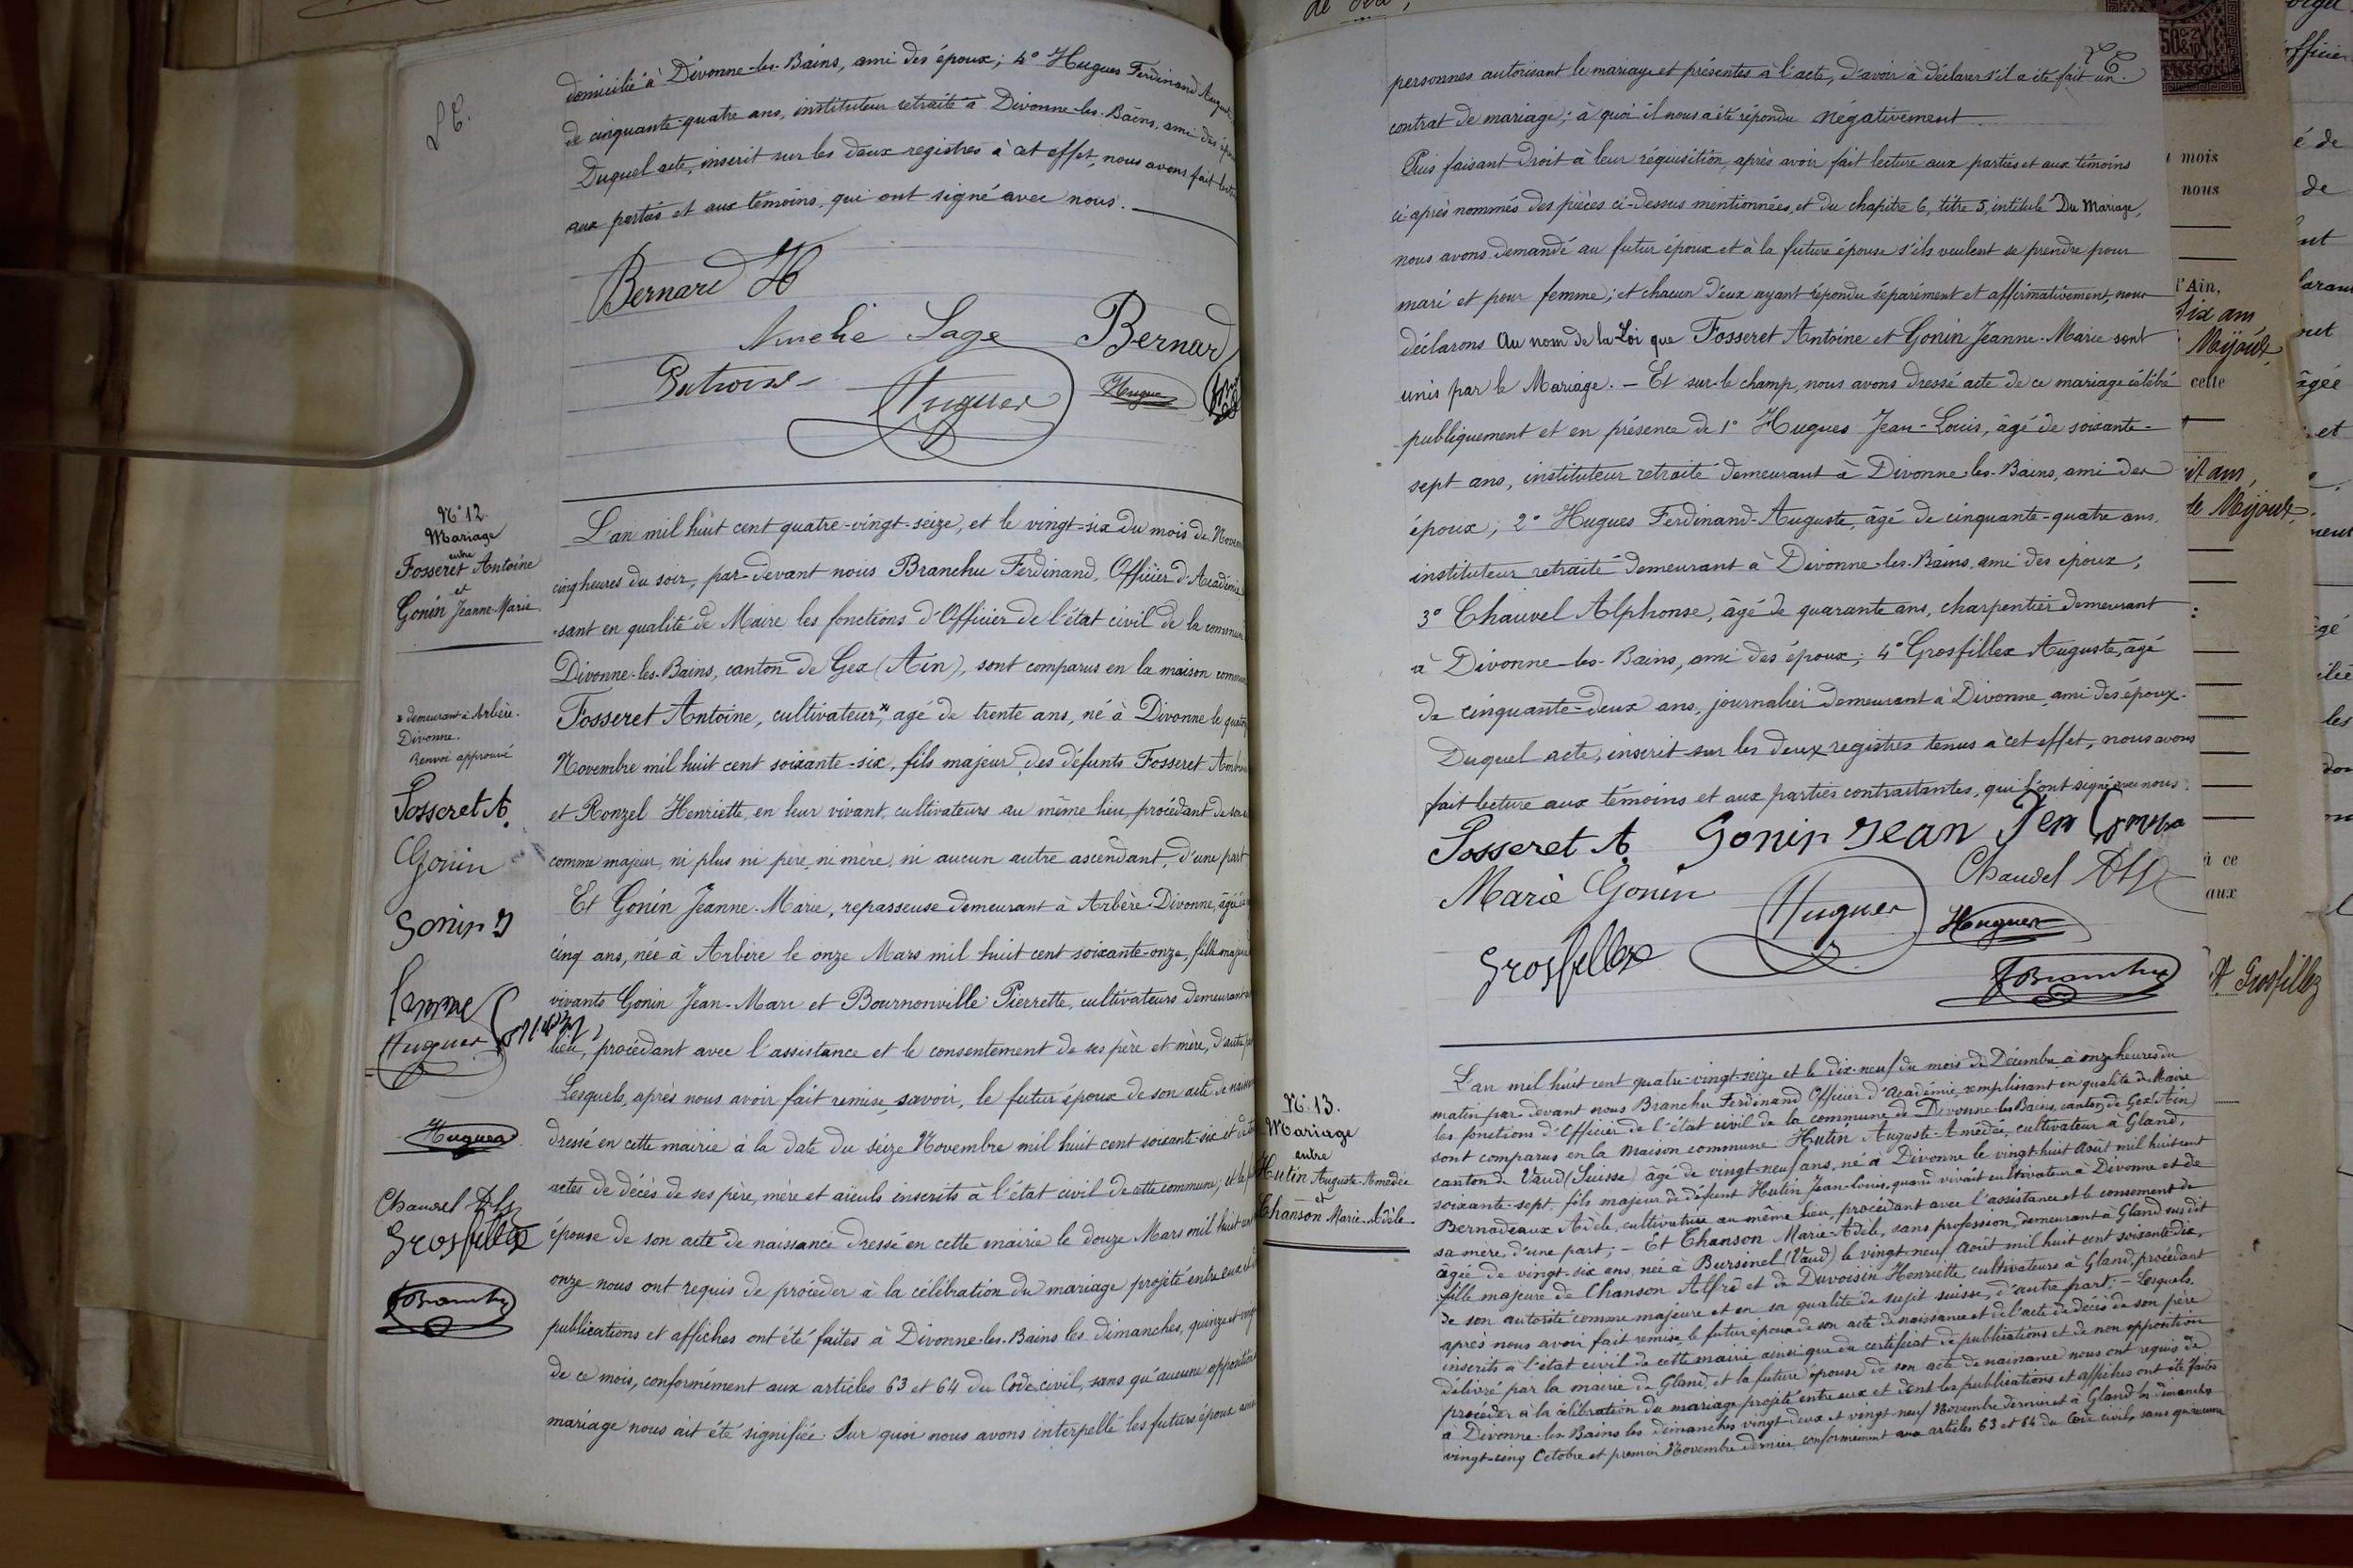 L C.
domicilié à Divonne-les-Bains, ami des époux; 4° Hugues Ferdinand August
de cinquante-quatre ans, instituteur retraité à Divonne-les-Bains, ami des
Duquel acte, inscrit sur les deux registres à cet effet, nous avons fait
aux parties et aux témoins, qui ont signé avec nous.
Bernard H
Amélie Sage Bernard
Hugues Hugues
N° 12.
Mariage
entre
Fosseret Antoine
et
Gonin Jeanne-Marie
L'an mil huit cent quatre-vingt-seize, et le vingt-six du mois de Novem
cinq heures du soir, par-devant nous Branchu Ferdinand, Officier d'Académie
-sant en qualité de Maire les fonctions d'Officier de l'état civil de la commune
Divonne-les-Bains, canton de Gex (Ain), sont comparus en la maison commune
x demeurant à Arbère-
Divonne.
Renvoi approuvé
Fosseret Antoine, cultivateur x, agé de trente ans, né à Divonne le
Novembre mil huit cent soixante-six, fils majeur des défunts Fosseret
et Ronzel Henriette, en leur vivant, cultivateurs au même lieu, procédant de
comme majeur, ni plus ni père, ni mère, ni aucun autre ascendant, d'une part
Et Gonin Jeanne-Marie, repasseuse demeurant à Arbère-Divonne, âgée
cinq ans, née à Arbère le onze Mars mil huit cent soixante-onze, fille majeure
vivants Gonin Jean-Marc et Bournonville Pierrette, cultivateurs demeurant
lieu, procédant avec l'assistance et le consentement de ses père et mère, d'autre
Lesquels, après nous avoir fait remise, savoir, le futur époux de son acte de
dressé en cette mairie à la date du seize Novembre mil huit cent soixante-six et
actes de décès de ses père, mère et aïeuls inscrits à l'état civil de cette commune; et la
épouse de son acte de naissance dressé en cette mairie le douze Mars mil huit cent
onze nous ont requis de procéder à la célébration du mariage projeté entre eux et
publications et affiches ont été faites à Divonne-les-Bains les dimanches, quinze et
de ce mois, conformément aux articles 63 et 64 du Code civil, sans qu'aucune opposition
mariage nous ait été signifiée. Sur quoi nous avons interpellé les futurs époux
Fosseret A.
Gonin
Gonin J
femme Gonin
Hugues
Hugues
Chauvel Alp
Grosfillex
F Branchu
L C
personnes autorisant le mariage et présentes à l'acte, d'avoir à déclarer s'il a été fait un
contrat de mariage; à quoi il nous a été répondu négativement
Puis faisant droit à leur réquisition, après avoir fait lecture aux parties et aux témoins
ci-après nommés des pièces ci-dessus mentionnées, et du chapitre 6, titre 5, intitulé Du Mariage,
nous avons demandé au futur époux et à la future épouse s'ils veulent se prendre pour
mari et pour femme; et chacun d'eux ayant répondu séparément et affirmativement, nous
déclarons Au nom de la Loi que Fosseret Antoine et Gonin Jeanne-Marie sont
unis par le Mariage. — Et sur-le champ, nous avons dressé acte de ce mariage célébré
publiquement et en présence de 1° Hugues Jean-Louis, âgé de soixante-
sept ans, instituteur retraité demeurant à Divonne-les-Bains, ami des
époux; 2° Hugues Ferdinand-Auguste, âgé de cinquante-quatre ans,
instituteur retraité demeurant à Divonne-les-Bains, ami des époux;
3° Chauvel Alphonse, âgé de quarante ans, charpentier demeurant
à Divonne-les-Bains, ami des époux; 4° Grosfillex Auguste, âgé
de cinquante-deux ans, journalier demeurant à Divonne, ami des époux.
Duquel acte, inscrit sur les deux registres tenus à cet effet, nous avons
fait lecture aux témoins et aux parties contractantes, qui l'ont signé avec nous.
Fosseret A. Gonin Jean
Marie Gonin Hugues Chauvel Alp
Grosfillex Hugues
F Branchu
N° 13.
Mariage
entre
Hutin Auguste-Amédée
et
Chanson Marie-Adèle
L'an mil huit cent quatre-vingt-seize et le dix-neuf du mois de Décembre à onze heures du
matin par-devant nous Branchu Ferdinand Officier d'Académie, remplissant en qualité de Maire
les fonctions d'Officier de l'état civil de la commune de Divonne-les-Bains, canton de Gex (Ain)
sont comparus en la maison commune Hutin Auguste-Amédée, cultivateur à Gland,
canton de Vaud (Suisse) âgé de vingt-neuf ans, né à Divonne le vingt-huit Août mil huit cent
soixante-sept, fils majeur de défunt Hutin Jean-Louis, quand vivait cultivateur à Divonne et de
Bernadeaux Adèle, cultivatrice au même lieu, procédant avec l'assistance et le consement de
sa mère, d'une part; — Et Chanson Marie-Adèle, sans profession, demeurant à Gland susdit
âgée de vingt-six ans, née à Bursinel (Vaud) le vingt-neuf Août mil huit cent soixante dix,
fille majeure de Chanson Alfred et de Duvoisin Henriette, cultivateurs à Gland, procédant
de son autorité comme majeure et en sa qualité de sujet suisse, d'autre part; — Lesquels
après nous avoir fait remise, le futur époux de son acte de naissance et de l'acte de décès de son père
inscrits à l'état civil de cette mairie ainsi que du certificat de publications et de non opposition
délivré par la mairie de Gland, et la future épouse de son acte de naissance nous ont requis de
procéder à la célébration du mariage projeté entre eux et dont les publications et affiches ont été faites
à Divonne-les-Bains les dimanches vingt-deux et vingt-neuf Novembre dernier et à Gland les dimanches
vingt-cinq Octobre et premier Novembre dernier, conformément aux articles 63 et 64 du Code civil, sans qu'aucune
mois
nous
l'Ain,
dix ans
Mijoux,
cette
de Mijoux,
à ce
aux
A Grosfillex